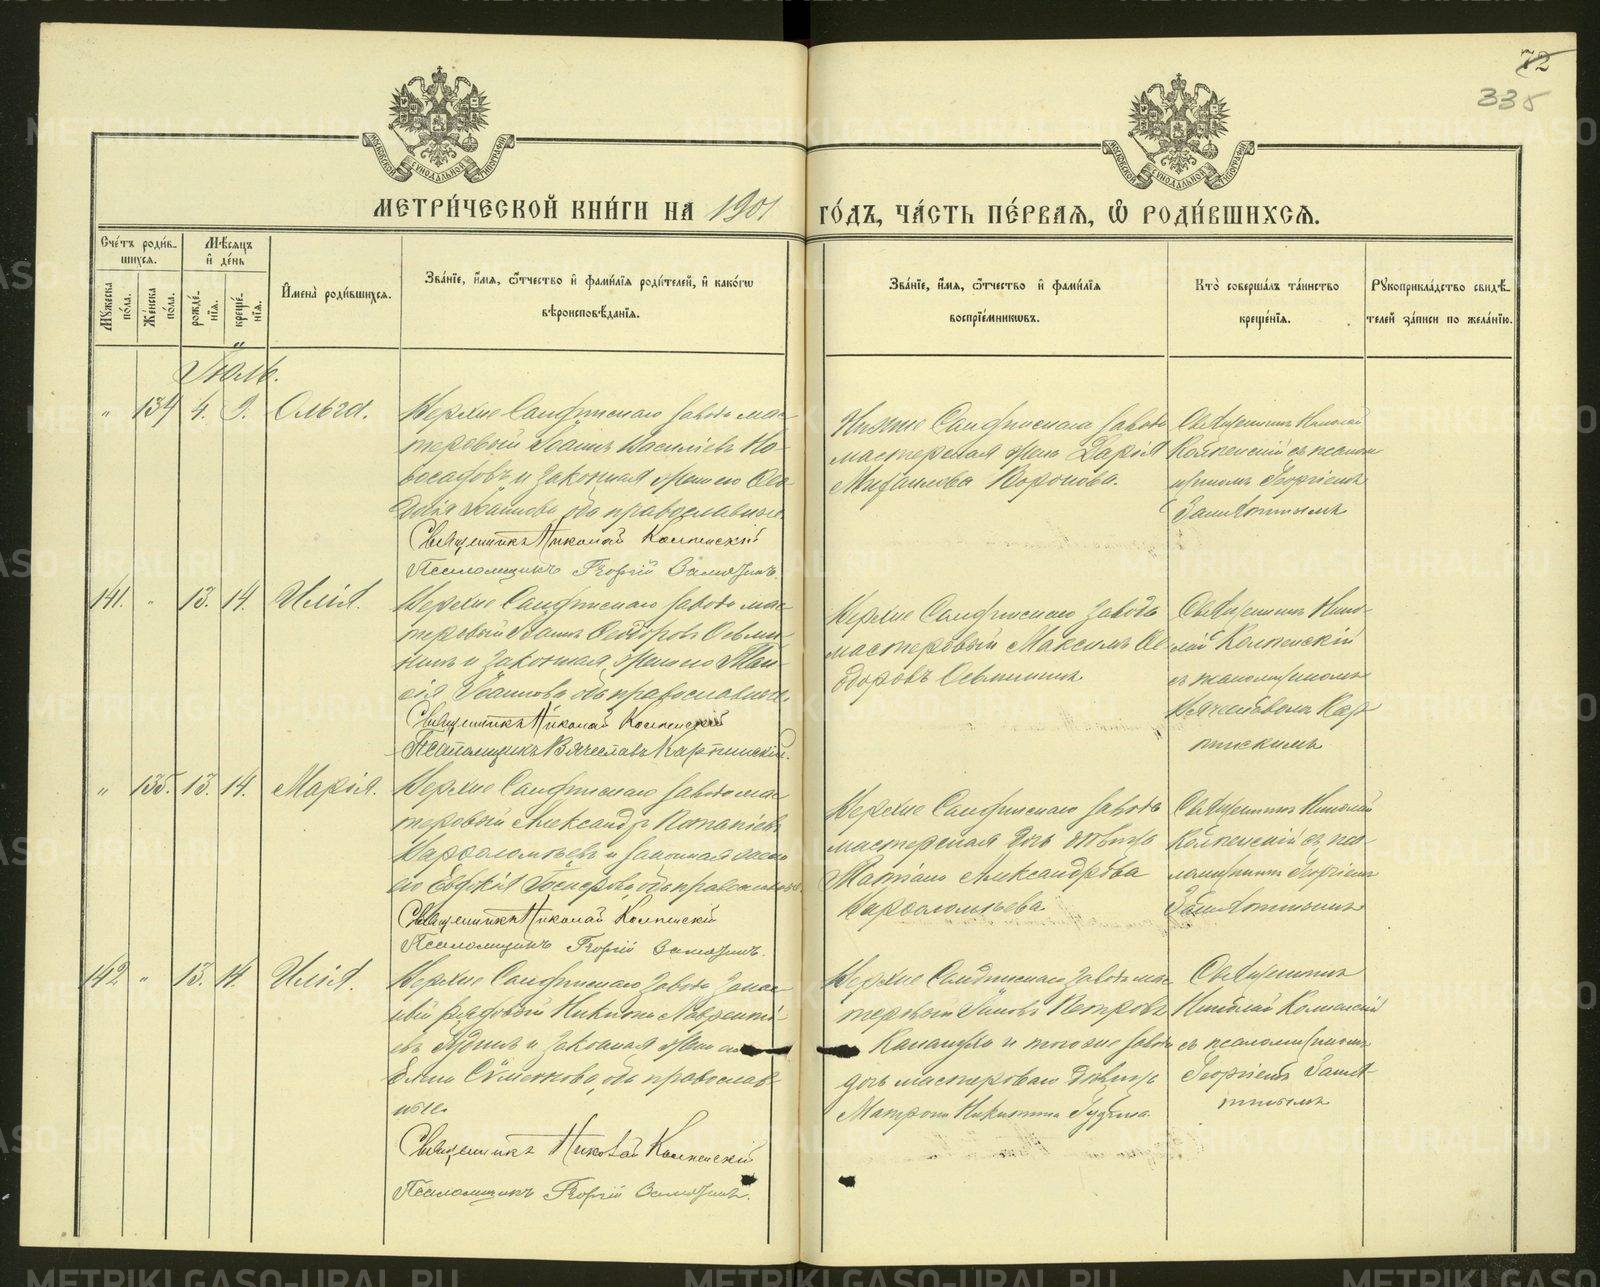 72
335
МОСКОВСКОЙ СѴНОДАЛЬНОЙ ТИПОГРАФІИ
МОСКОВСКОЙ СѴНОДАЛЬНОЙ ТИПОГРАФІИ
МЕТРИ́ЧЕСКОЙ КНИ́ГИ НА 1901 ГО́ДЪ, ЧА́СТЬ ПЕ́РВАѦ, Ѽ РОДИ́ВШИХСѦ.
Сче́тъ роди́в-
шихсѧ.
Мꙋжеска по́ла.
Же́нска по́ла.
Мѣ́сѧцъ
и҆ де́нь
рожде́-
нїѧ.
креще́-
нїѧ.
И҆мена̀ роди́вшихсѧ.
Зва́нїе, и҆́мѧ, ѻ҆́тчество и҆ фами́лїѧ роди́телей, и҆ како́гѡ
вѣроисповѣ́данїѧ.
Зва́нїе, и҆́мѧ, ѻ҆́тчество и҆ фами́лїѧ
воспрїе́мникѡвъ.
Кто̀ соверша́лъ та́инство
креще́нїѧ.
Рꙋкоприкла́дство свидѣ́-
телей за́писи по жела́нїю.
Іюль.
" 134 4. 9. Ольга.
Верхне Салдинскаго завода мас-
теровый Іоаннъ Васильевъ Но-
восадовъ и законная жена его Ев-
докія Іоаннова, оба православные.
Священникъ Николай Колпенскій
Псаломщикъ Георгій Замятинъ.
Нижне Салдинскаго завода
мастерская жена Дарія
Михаилова Воронова.
Священникъ Николай
Колпенскій съ псалом-
щикомъ Георгіемъ
Замятинымъ
141. " 13. 14. Илія.
Верхне Салдинскаго завода мас-
теровый Іоаннъ Ѳеодоровъ
и законная жена его
Іоаннова, оба православные.
Священникъ Николай Колпенскій
Псаломщикъ Вячеславъ Карпинскій.
Верхне Салдинскаго завода
мастеровый Максимъ Ѳе-
одоровъ
Священникъ Нико-
лай Колпенскій
съ псаломщикомъ
Вячеславомъ Кар-
пинскимъ
" 135. 13. 14. Марія.
Верхне Салдинскаго завода мас-
теровый Александръ
Варѳоломѣевъ и законная жена
его Евдокія, оба православные.
Священникъ Николай Колпенскій
Псаломщикъ Георгій Замятинъ.
Верхне Салдинскаго завода
мастерская дочь дѣвица
Татіана Александрова
Варѳоломѣева
Священникъ Николай
Колпенскій съ пса-
ломщикомъ Георгіемъ
Замятинымъ
142 " 13. 14. Илія.
Верхне Салдинскаго завода запас-
ный рядовой Никита Лаврентi-
евъ Гудинъ и законная жена его
Елена Симеонова, оба православ-
ные.
Священникъ Николай Колпенскій
Псаломщикъ Георгій Замятинъ.
Верхне Салдинскаго завода мас-
теровый Іаковъ Петровъ
и того же завода
дочь мастероваго дѣвица
Матрона Никитина Гудина
Священникъ
Николай Колпенскій
съ псаломщикомъ
Георгіемъ Замят-
инымъ
METRIKI.GASO-URAL.RU